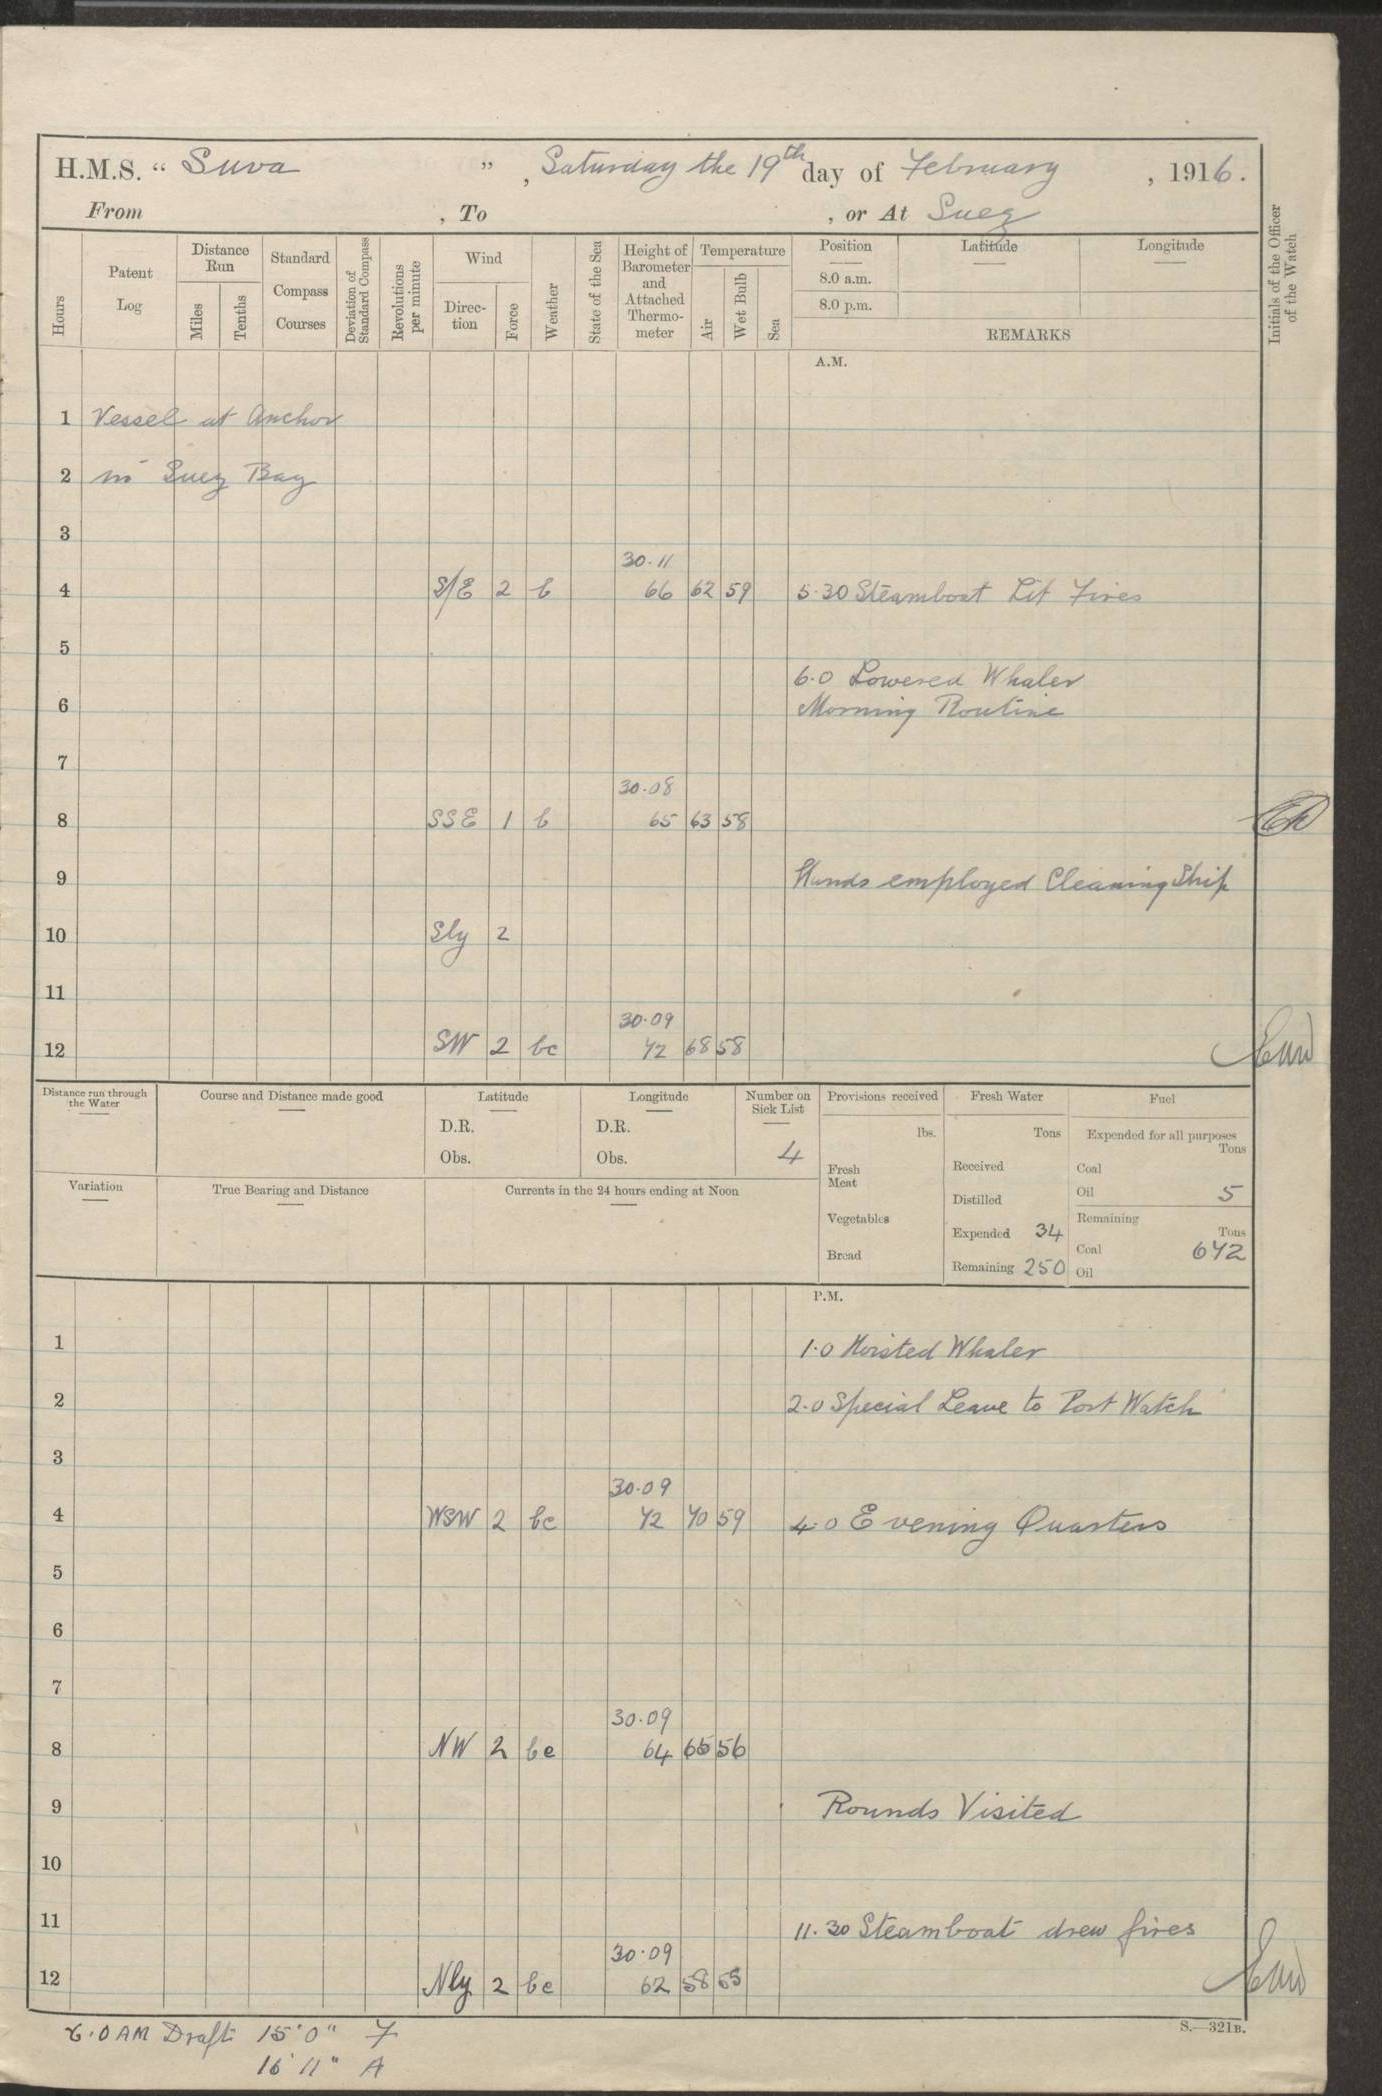 H.M.S. “ Suva ” , Saturday the 19th day of February , 1916.
From , To , or At Suez
Hours
Patent Log
Distance Run
Miles
Tenths
Standard Compass Courses
Deviation of Standard Compass
Revolutions per minute
Wind
Direc-tion
Force
Weather
State of the Sea
Height of Barometer and Attached Thermo-meter
Temperature
Air
Wet Bulb
Sea
Position Latitude Longitude
8.0 a.m.
8.0 p.m.
REMARKS
Initials of the Officer of the Watch
A.M.
1 Vessel at Anchor
2 in Suez Bay
3
30.11
4 S/E 2 b 66 62 59 5.30 Steamboat Lit Fires
5
6.0 Lowered Whaler
6 Morning Routine
7
30.08
8 SSE 1 b 65 63 58
9 Hands employed Cleaning Ship
10 Sly 2
11
30.09
12 SW 2 bc 72 68 58
Distance run through the Water
Course and Distance made good
Latitude
D.R.
Obs.
Longitude
D.R.
Obs.
Number on Sick List
4
Provisions received
lbs.
Fresh Meat
Vegetables
Bread
Fresh Water
Tons
Received
Distilled
Expended 34
Remaining 250
Fuel
Expended for all purposes
Tons
Coal
Oil 5
Remaining
Tons
Coal 672
Oil
Variation
True Bearing and Distance
Currents in the 24 hours ending at Noon
P.M.
1 1.0 Hoisted Whaler
2 2.0 Special Leave to Port Watch
3
30.09
4 WSW 2 bc 72 70 59 4.0 Evening Quarters
5
6
7
30.09
8 NW 2 bc 64 65 56
9 Rounds Visited
10
11 11.30 Steamboat drew fires
30.09
12 Nly 2 bc 62 58 55
S.—321B.
6.0 AM Draft 15'0" F
16'11" A